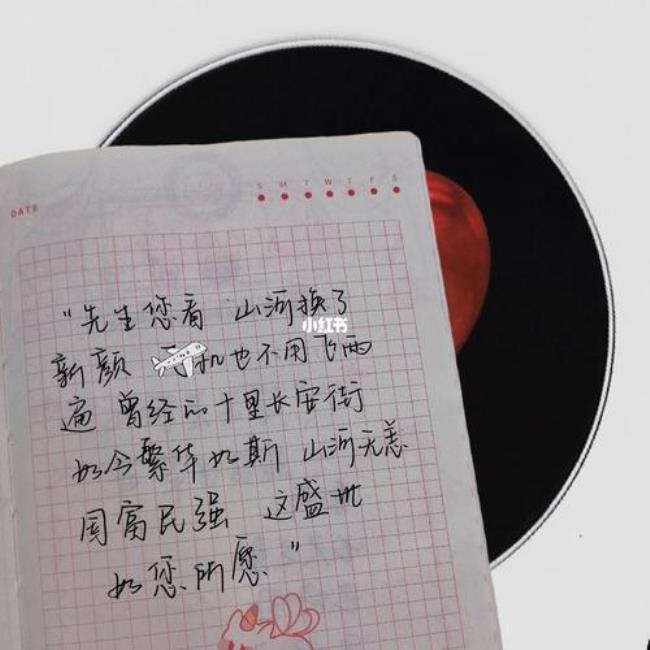 DATE
S M T W T F S
“先生您看 山河换了
小红书
新颜 飞机也不用飞两
遍 曾经的十里长安街
如今繁华如斯 山河无恙
国富民强 这盛世
如您所愿”